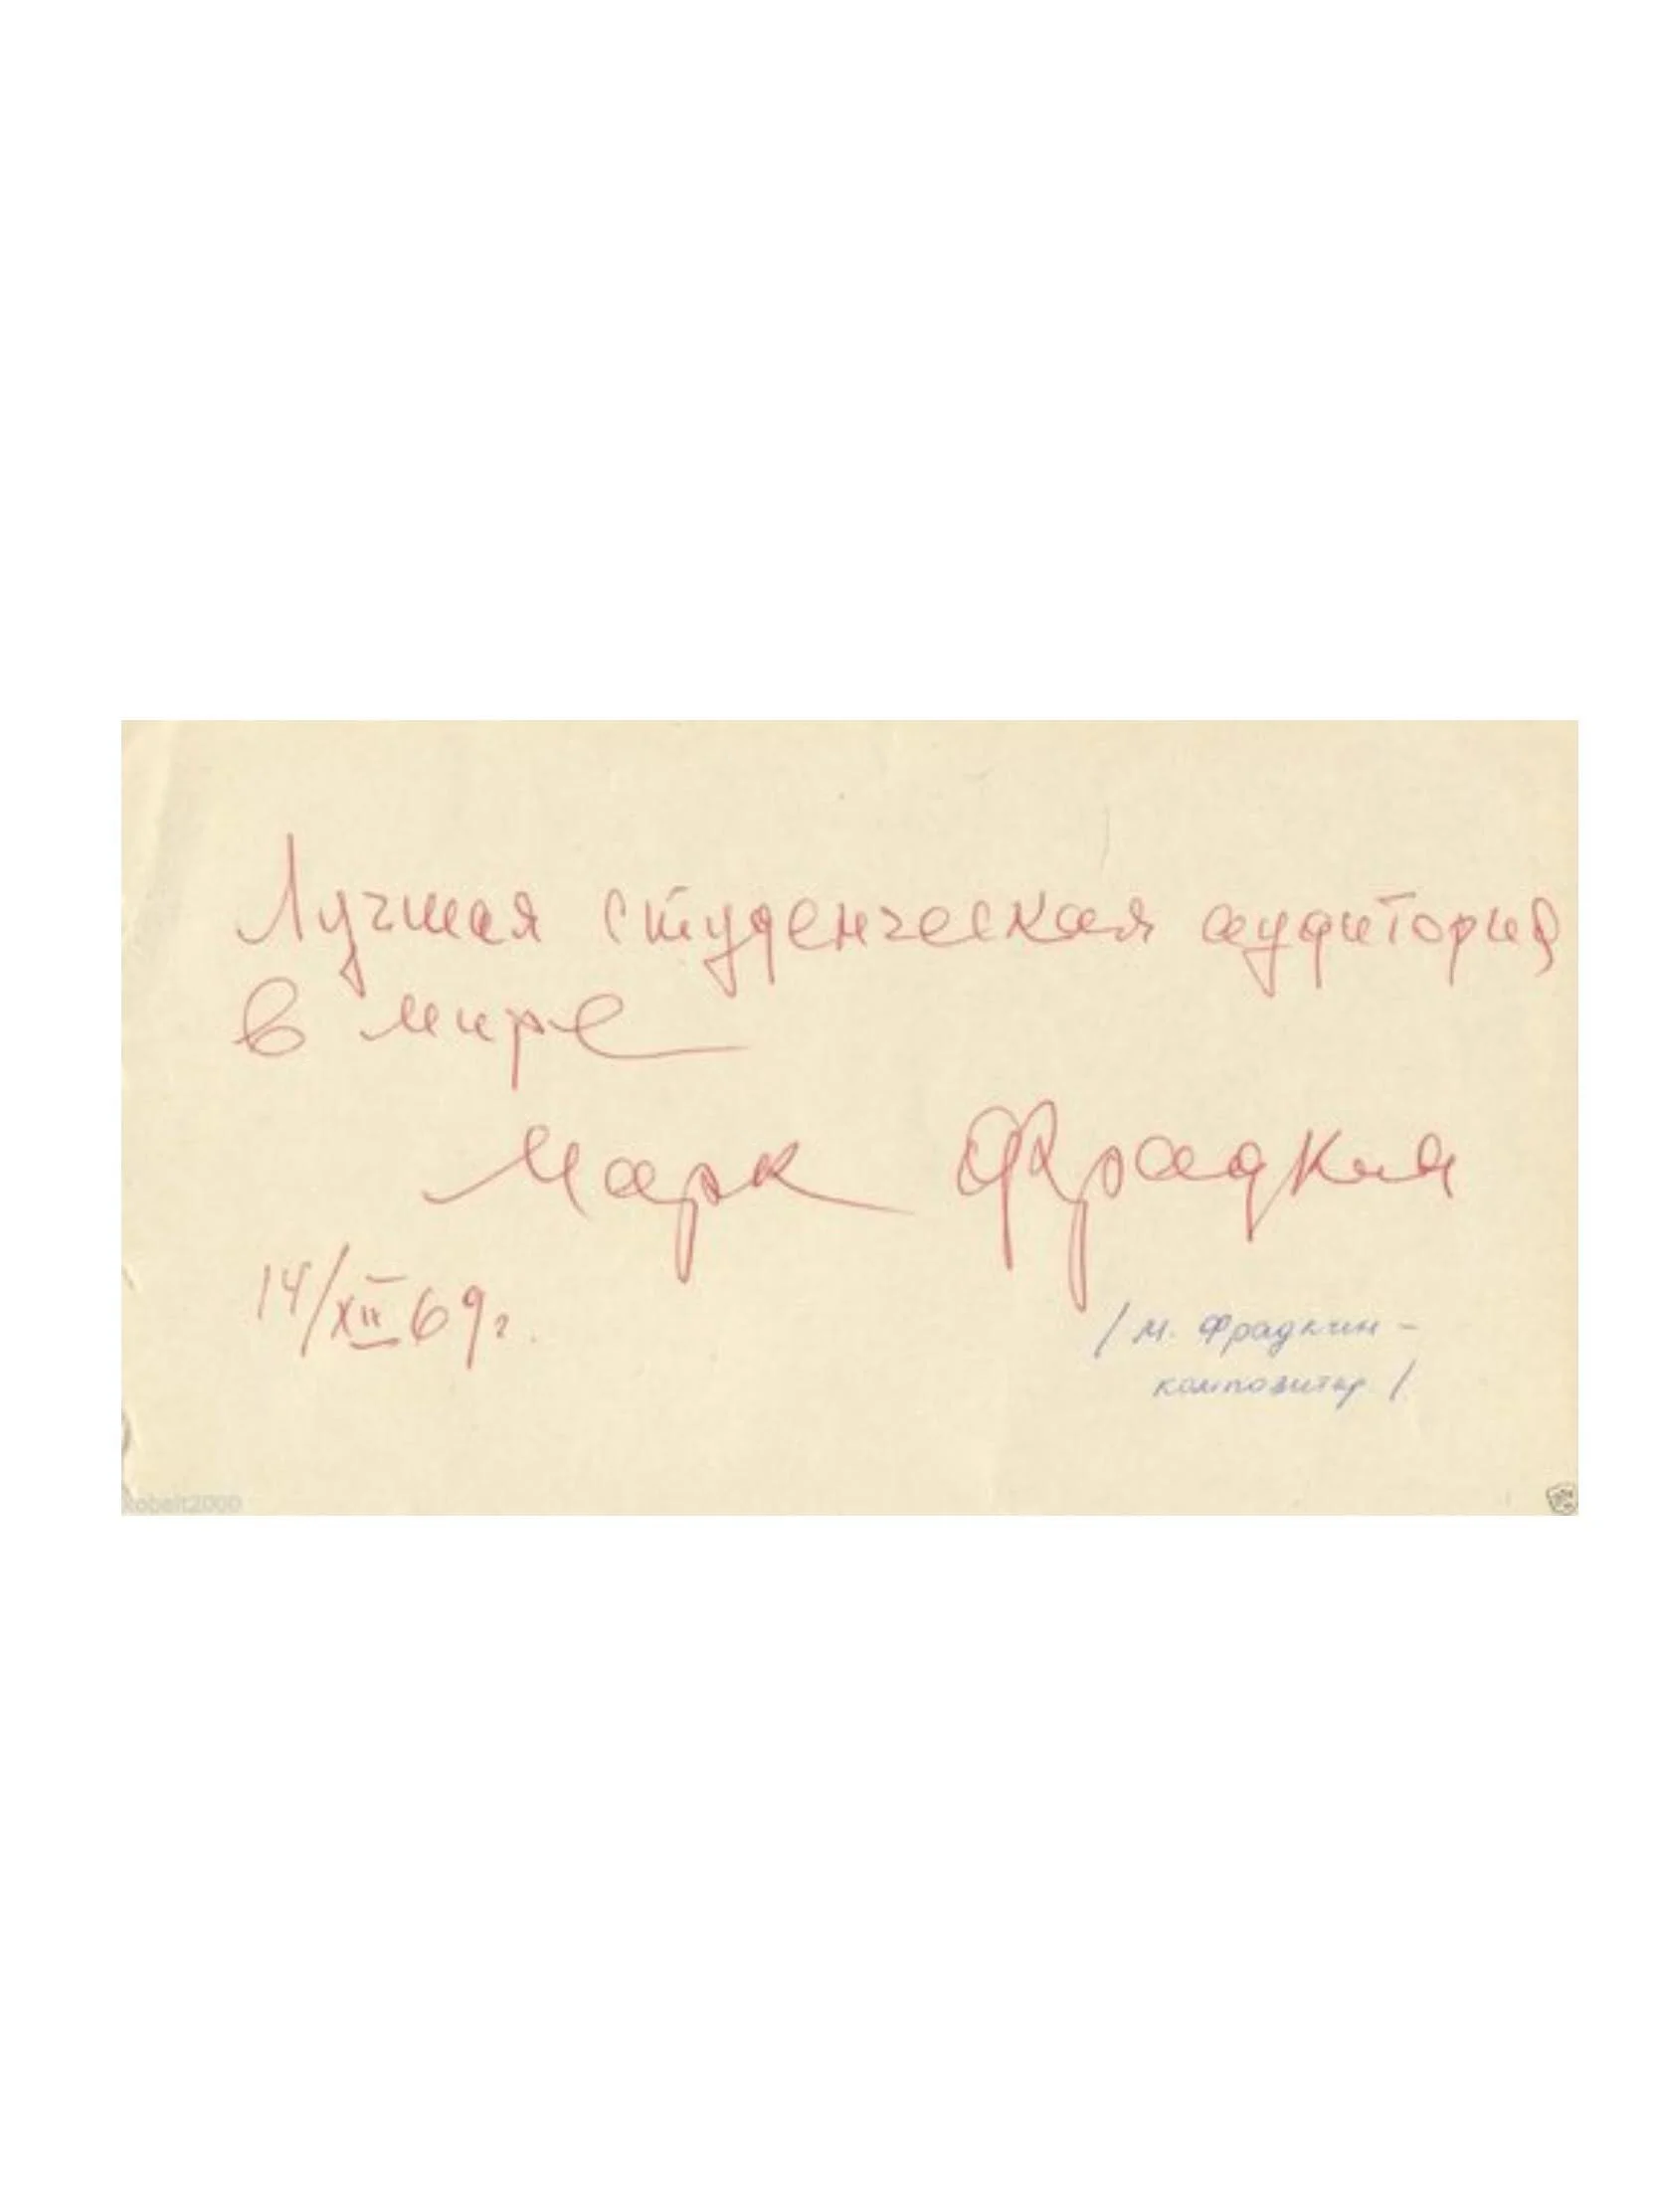 Лучшая студенческая аудитория
в мире
Марк Фрадкин
14/XII 69г.
/М. Фрадкин -
композитор/
kobelt2000